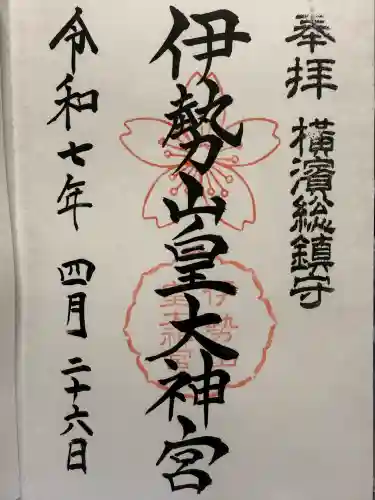 奉拝 横濱総鎮守
伊勢山皇大神宮
伊勢山
皇大神宮
令和七年 四月二十六日